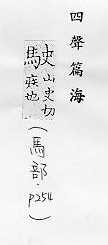 四聲篇海
駛山史切
疾也
(馬部.P254)